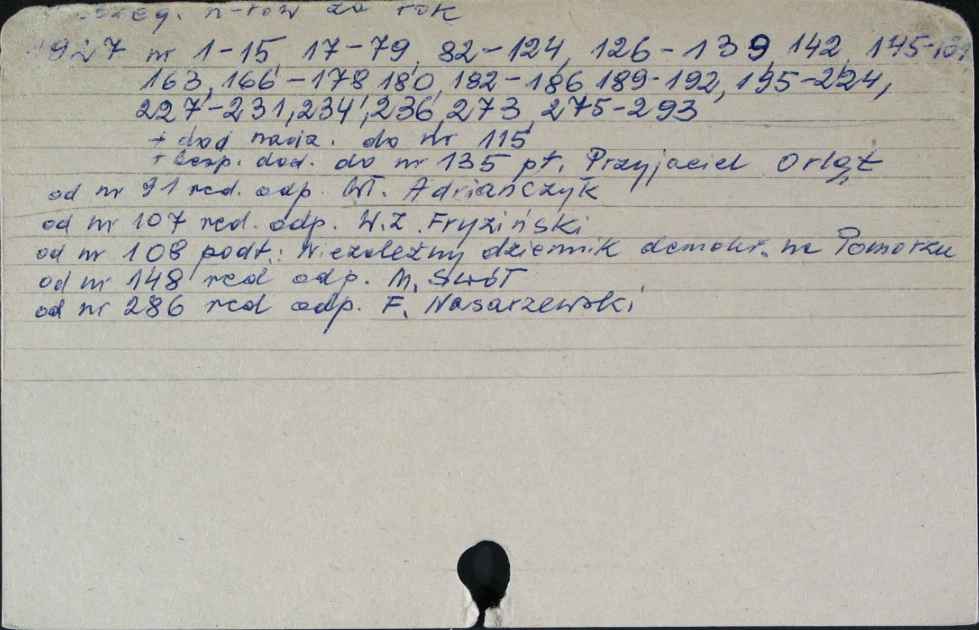 n-rów za rok
1927 nr 1-15, 17-79, 82-124, 126-139, 142, 145-
163, 166-178, 180, 182-186, 189-192, 195-224,
227-231, 234, 236, 273, 275-293
+ dod nadz. do nr 115
+ bezp. dod. do nr 135 pt. Przyjaciel Orląt
od nr 91 red. odp. Wł. Adriańczyk
od nr 107 red. odp. W.Z. Fryziński
od nr 108 podt.: Niezależny dziennik demokr. na Pomorzu
od nr 148 red odp. M. Swół
od nr 286 red odp. F. Nasarzewski